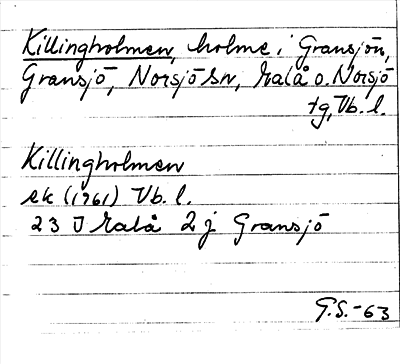 Killingholmen, holme i Gransjön,
Gransjö, Norsjö sn, Malå o. Norsjö
tg, Vb. l.
Killingholmen
ek (1961) Vb. l.
23 J Malå 2 j Gransjö
G.S. -63